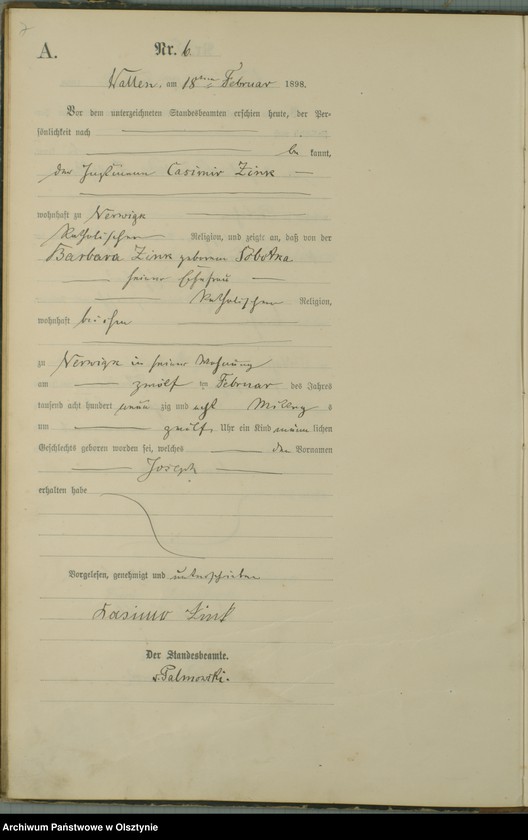 A. Nr. 6.
Wallen, am 18ten Februar 1898.
Vor dem unterzeichneten Standesbeamten erschien heute, der Per-
sönlichkeit nach
be kannt,
der Instmann Casimir Zink
wohnhaft zu Nerwigk
Katholischer Religion, und zeigte an, daß von der
Barbara Zink geborenen Sobotka
seiner Ehefrau
Katholischen Religion,
wohnhaft bei ihm
zu Nerwigk in seiner Wohnung
am zwölf ten Februar des Jahres
tausend acht hundert neun zig und acht Mittag s
um zwölf Uhr ein Kind männ lichen
Geschlechts geboren worden sei, welches den Vornamen
Joseph
erhalten habe
Vorgelesen, genehmigt und unterschrieben
Kasimir Zink
Der Standesbeamte.
v. Palmowski.
Archiwum Państwowe w Olsztynie